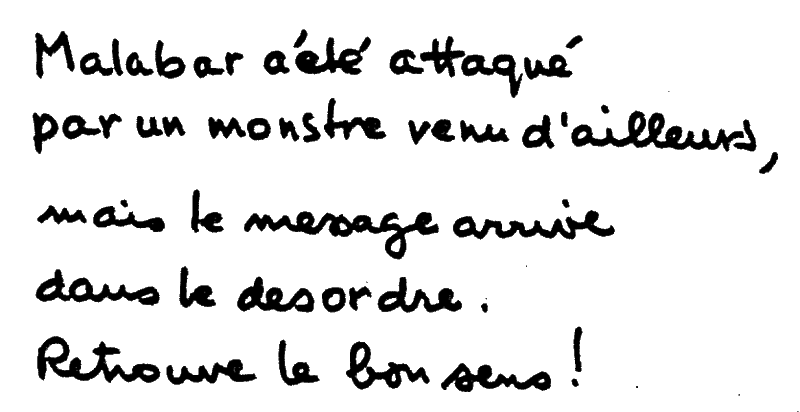 Malabar a été attaqué
par un monstre venu d'ailleurs,
mais le message arrive
dans le desordre.
Retrouve le bon sens !